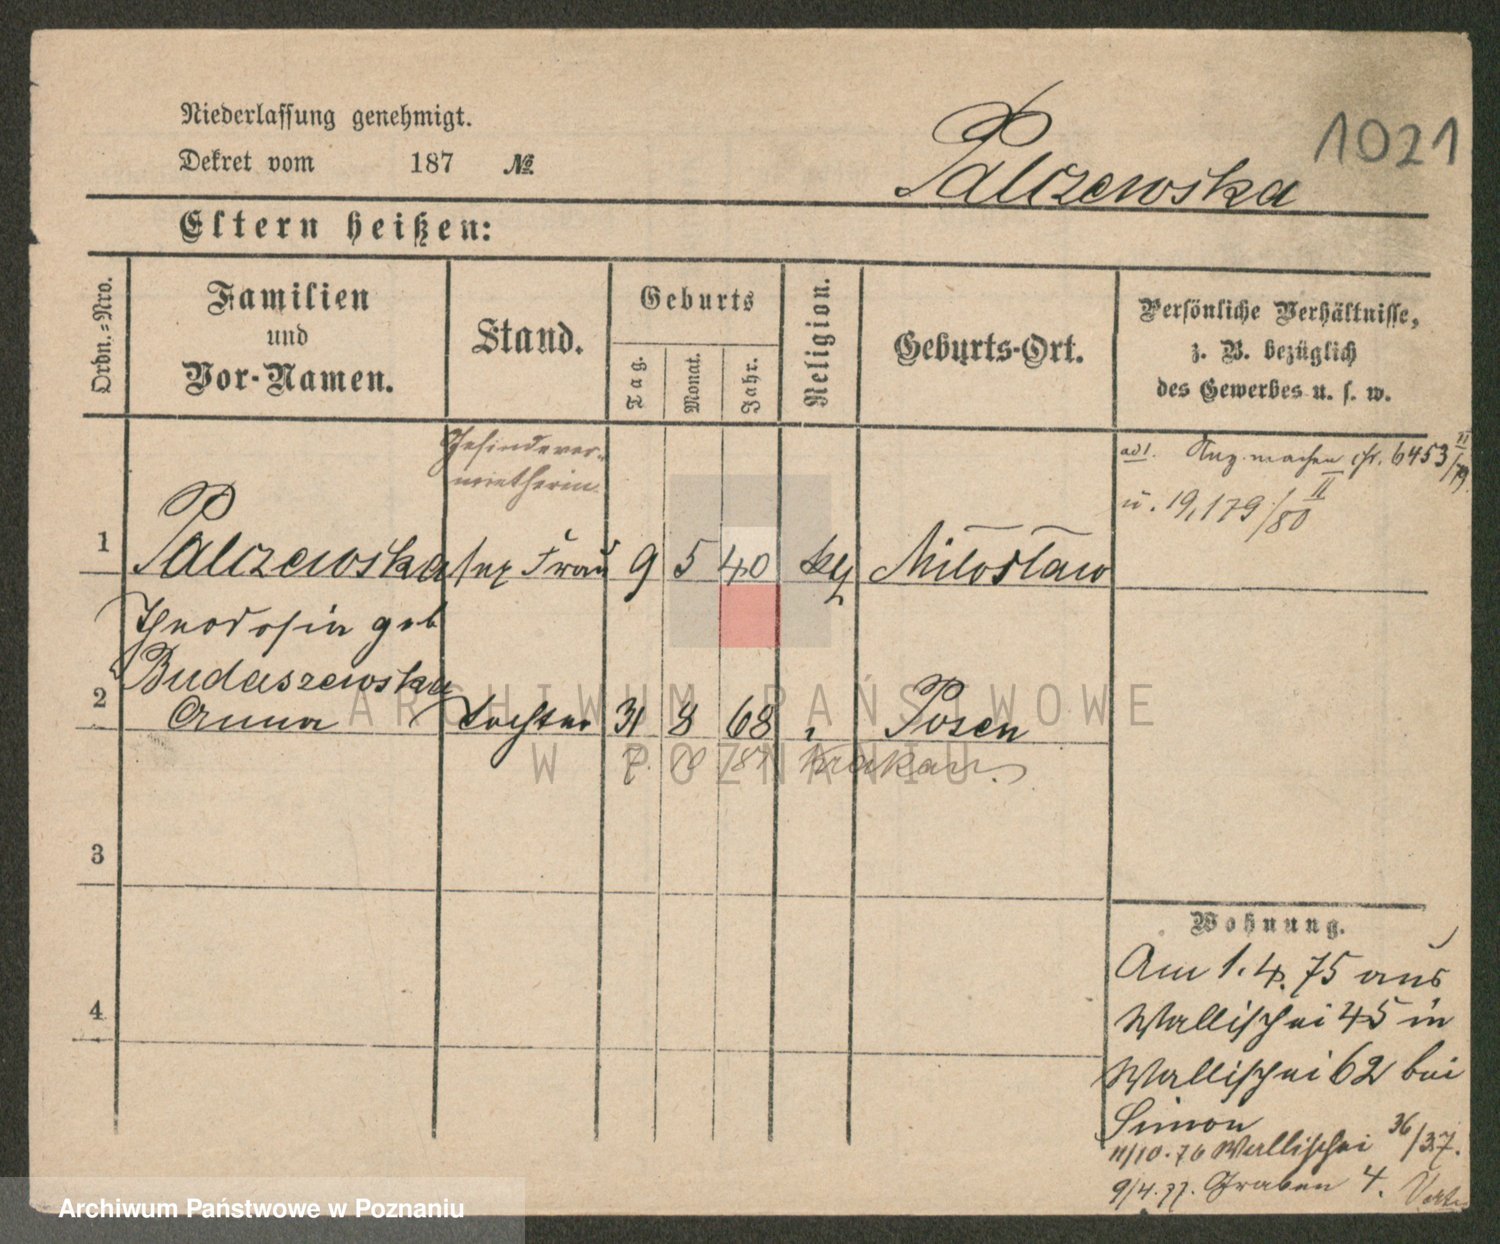 1021
Niederlassung genehmigt.
Dekret vom 187 №
Palczewska
Eltern heißen:
Ordn.-Nro.
Familien
und
Vor-Namen.
Stand.
Geburts
Tag.
Monat.
Jahr.
Religion.
Geburts-Ort.
Persönliche Verhältnisse,
z. B. bezüglich
des Gewerbes u. s. w.
Gesindever-
mietherin
ad 1. 6453 II/79
u. 19,179/80 II
1 Palczewska Frau 9 5 40 Miloslaw
Theodosia geb
Budaszewska
2 Anna Tochter 31 8 68 Posen
7. 10 87 Krakau.
3
4
Wohnung.
Am 1. 4. 75 aus
Wallischei 45 in
Wallischei 62 bei
Simon
11/10. 76 Wallischei 36/37.
9/4. 77. Graben 4.
ARCHIWUM PAŃSTWOWE
W POZNANIU
Archiwum Państwowe w Poznaniu